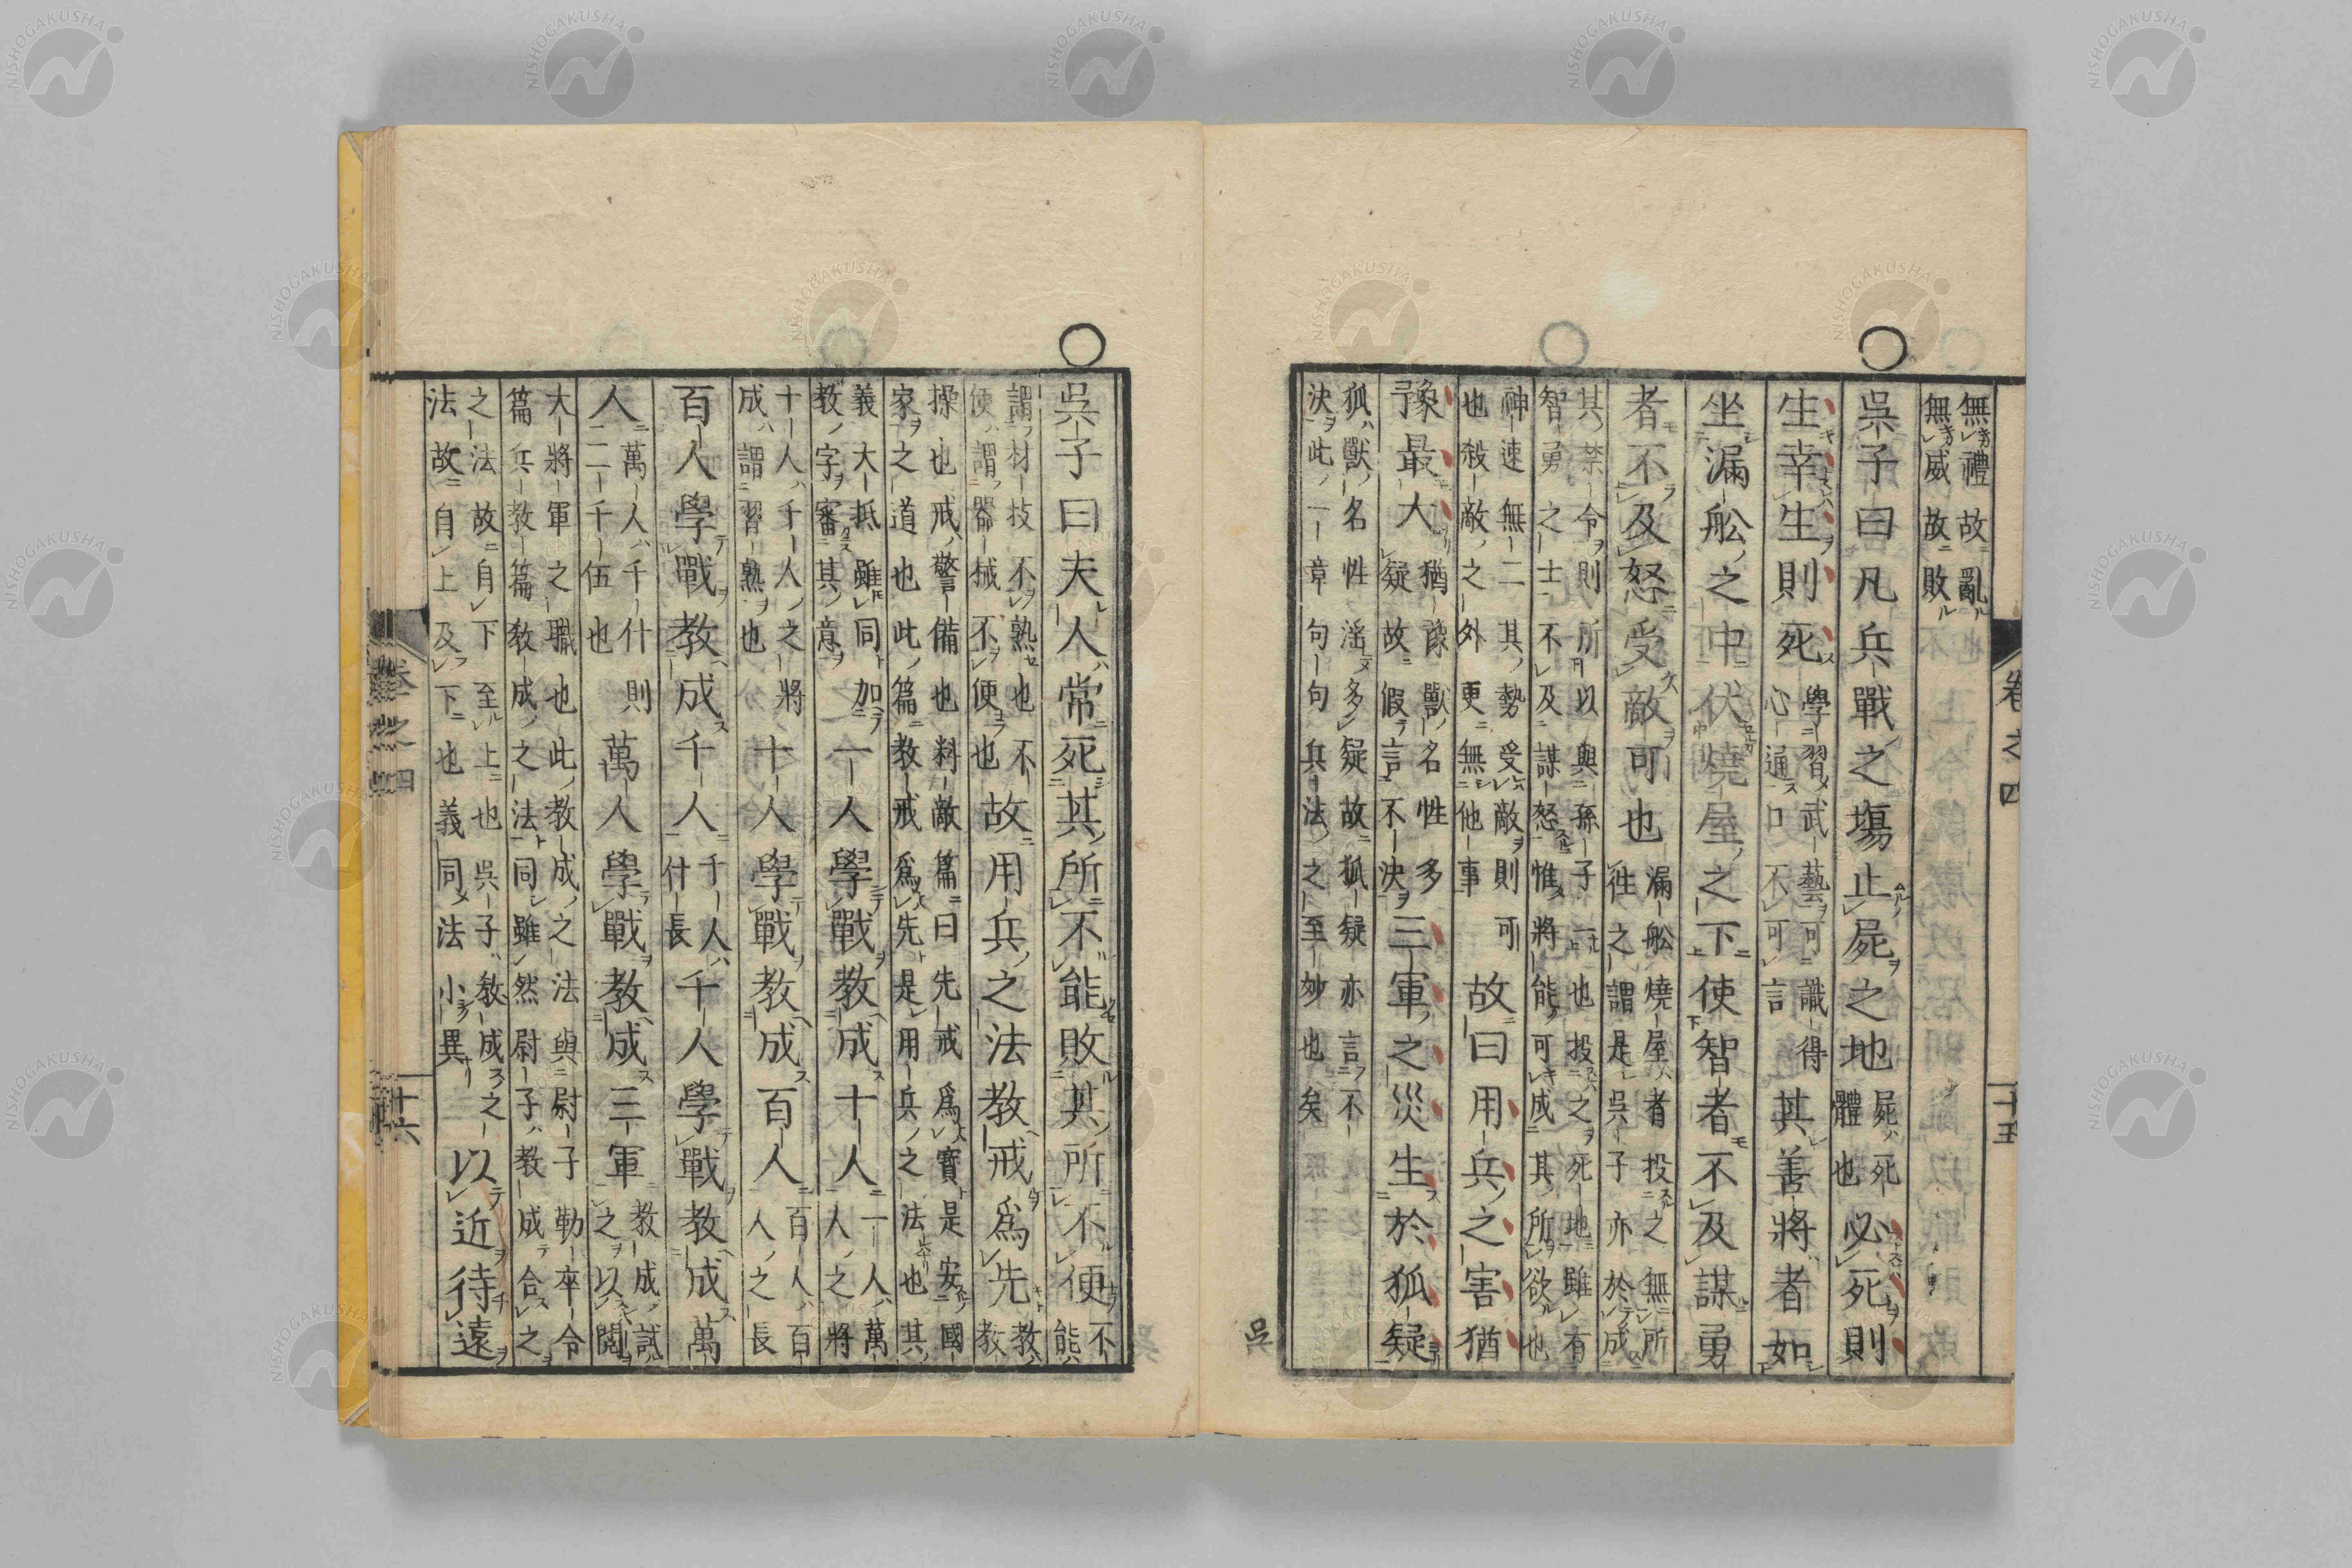 無禮故亂
無威故敗
吳子曰凡兵戰之塲止屍之地屍死體也必死則
生幸生則死學習武藝可識得心通口不可言其善將者如
坐漏舩之中伏燒屋之下使智者不及謀勇
者不及怒受敵可也漏舩燒屋者投之無所徃之謂是吳子亦於成
其禁令則所以與孫子一也投之死地雖有智勇之士不及謀怒惟將能可成其所欲也
神速無二其勢受敵則可也殺敵之外更無他事故曰用兵之害猶
豫最大猶豫獸名性多疑故假言不決三軍之災生於狐疑
狐獸名性滛多疑故狐疑亦言不決此一章句句兵法之至妙也矣
吳
卷之四
十五
吳子曰夫人常死其所不能敗其所不便不能
謂材技不熟也不便謂器械不便也故用兵之法教戒爲先教教
操也戒警備也料敵篇曰先戒爲寶是安國家之道也此篇教戒爲先是用兵之法也其
義大抵雖同加教字審其意一人學戰教成十人一人萬人之將
十人千人之將成謂習熟也十人學戰教成百人百人百人之長
百人學戰教成千人千人什長千人學戰教成萬
人萬人千什則二千伍也萬人學戰教成三軍教成試之以閲
大將軍之職也此教成之法與尉子勒卒令篇兵教篇教成之法同雖然尉子教成合之
之法故自下至上也吳子教成之法故自上及下也義同法小異以近待遠
卷之四
十六